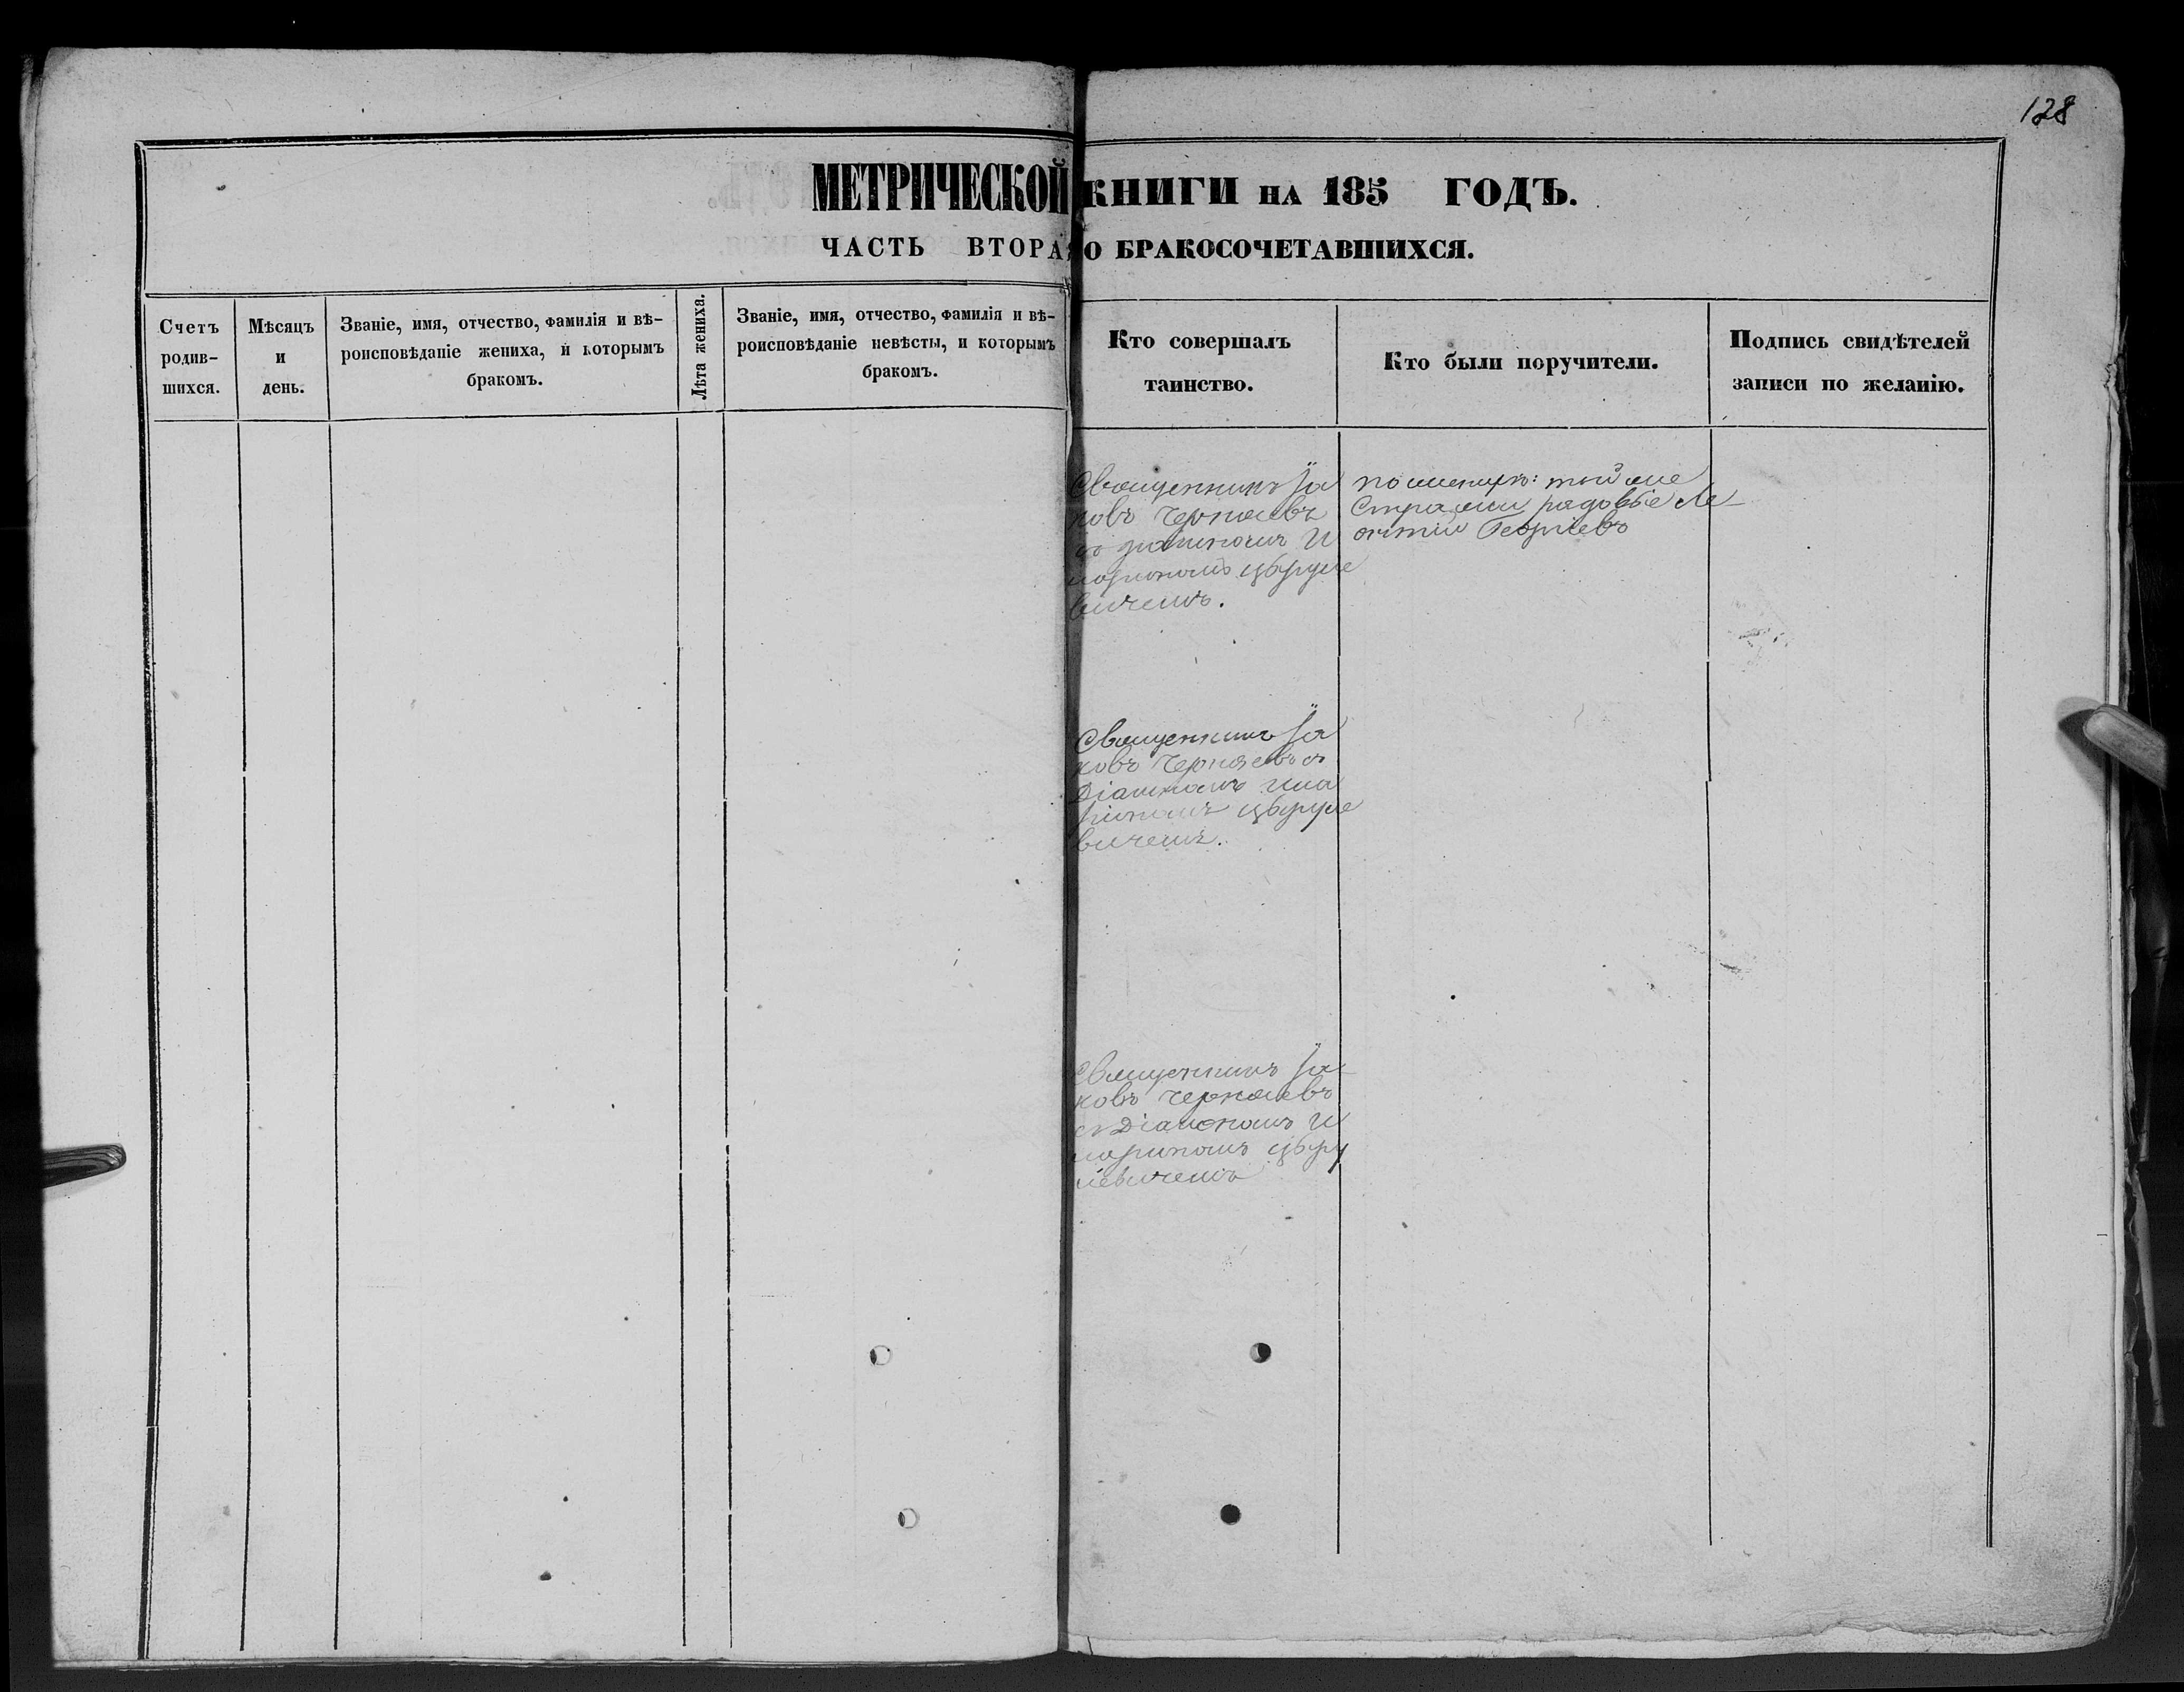 128
МЕТРИЧЕСКОЙ КНИГИ НА 185 ГОДЪ.
ЧАСТЬ ВТОРА О БРАКОСОЧЕТАВШИХСЯ.
Счетъ
родив-
шихся.
Мѣсяцъ
и
день.
Званіе, имя, отчество, фамилія и вѣ-
роисповѣданіе жениха, и которымъ
бракомъ.
Лѣта жениха.
Званіе, имя, отчество, фамилія и вѣ-
роисповѣданіе невѣсты, и которымъ
бракомъ.
Кто совершалъ
таинство.
Кто были поручители.
Подпись свидѣтелей
записи по желанію.
Священникъ Іа
ковъ Черняевъ
съ дьячкомъ И
вичемъ.
по женихѣ: той же
рядовые Ле
онтій Георгіевъ
Священникъ Іа
ковъ Черняевъ съ
Діячкомъ
вичемъ.
Священникъ Іа
ковъ Черняевъ
съ Діячкомъ И